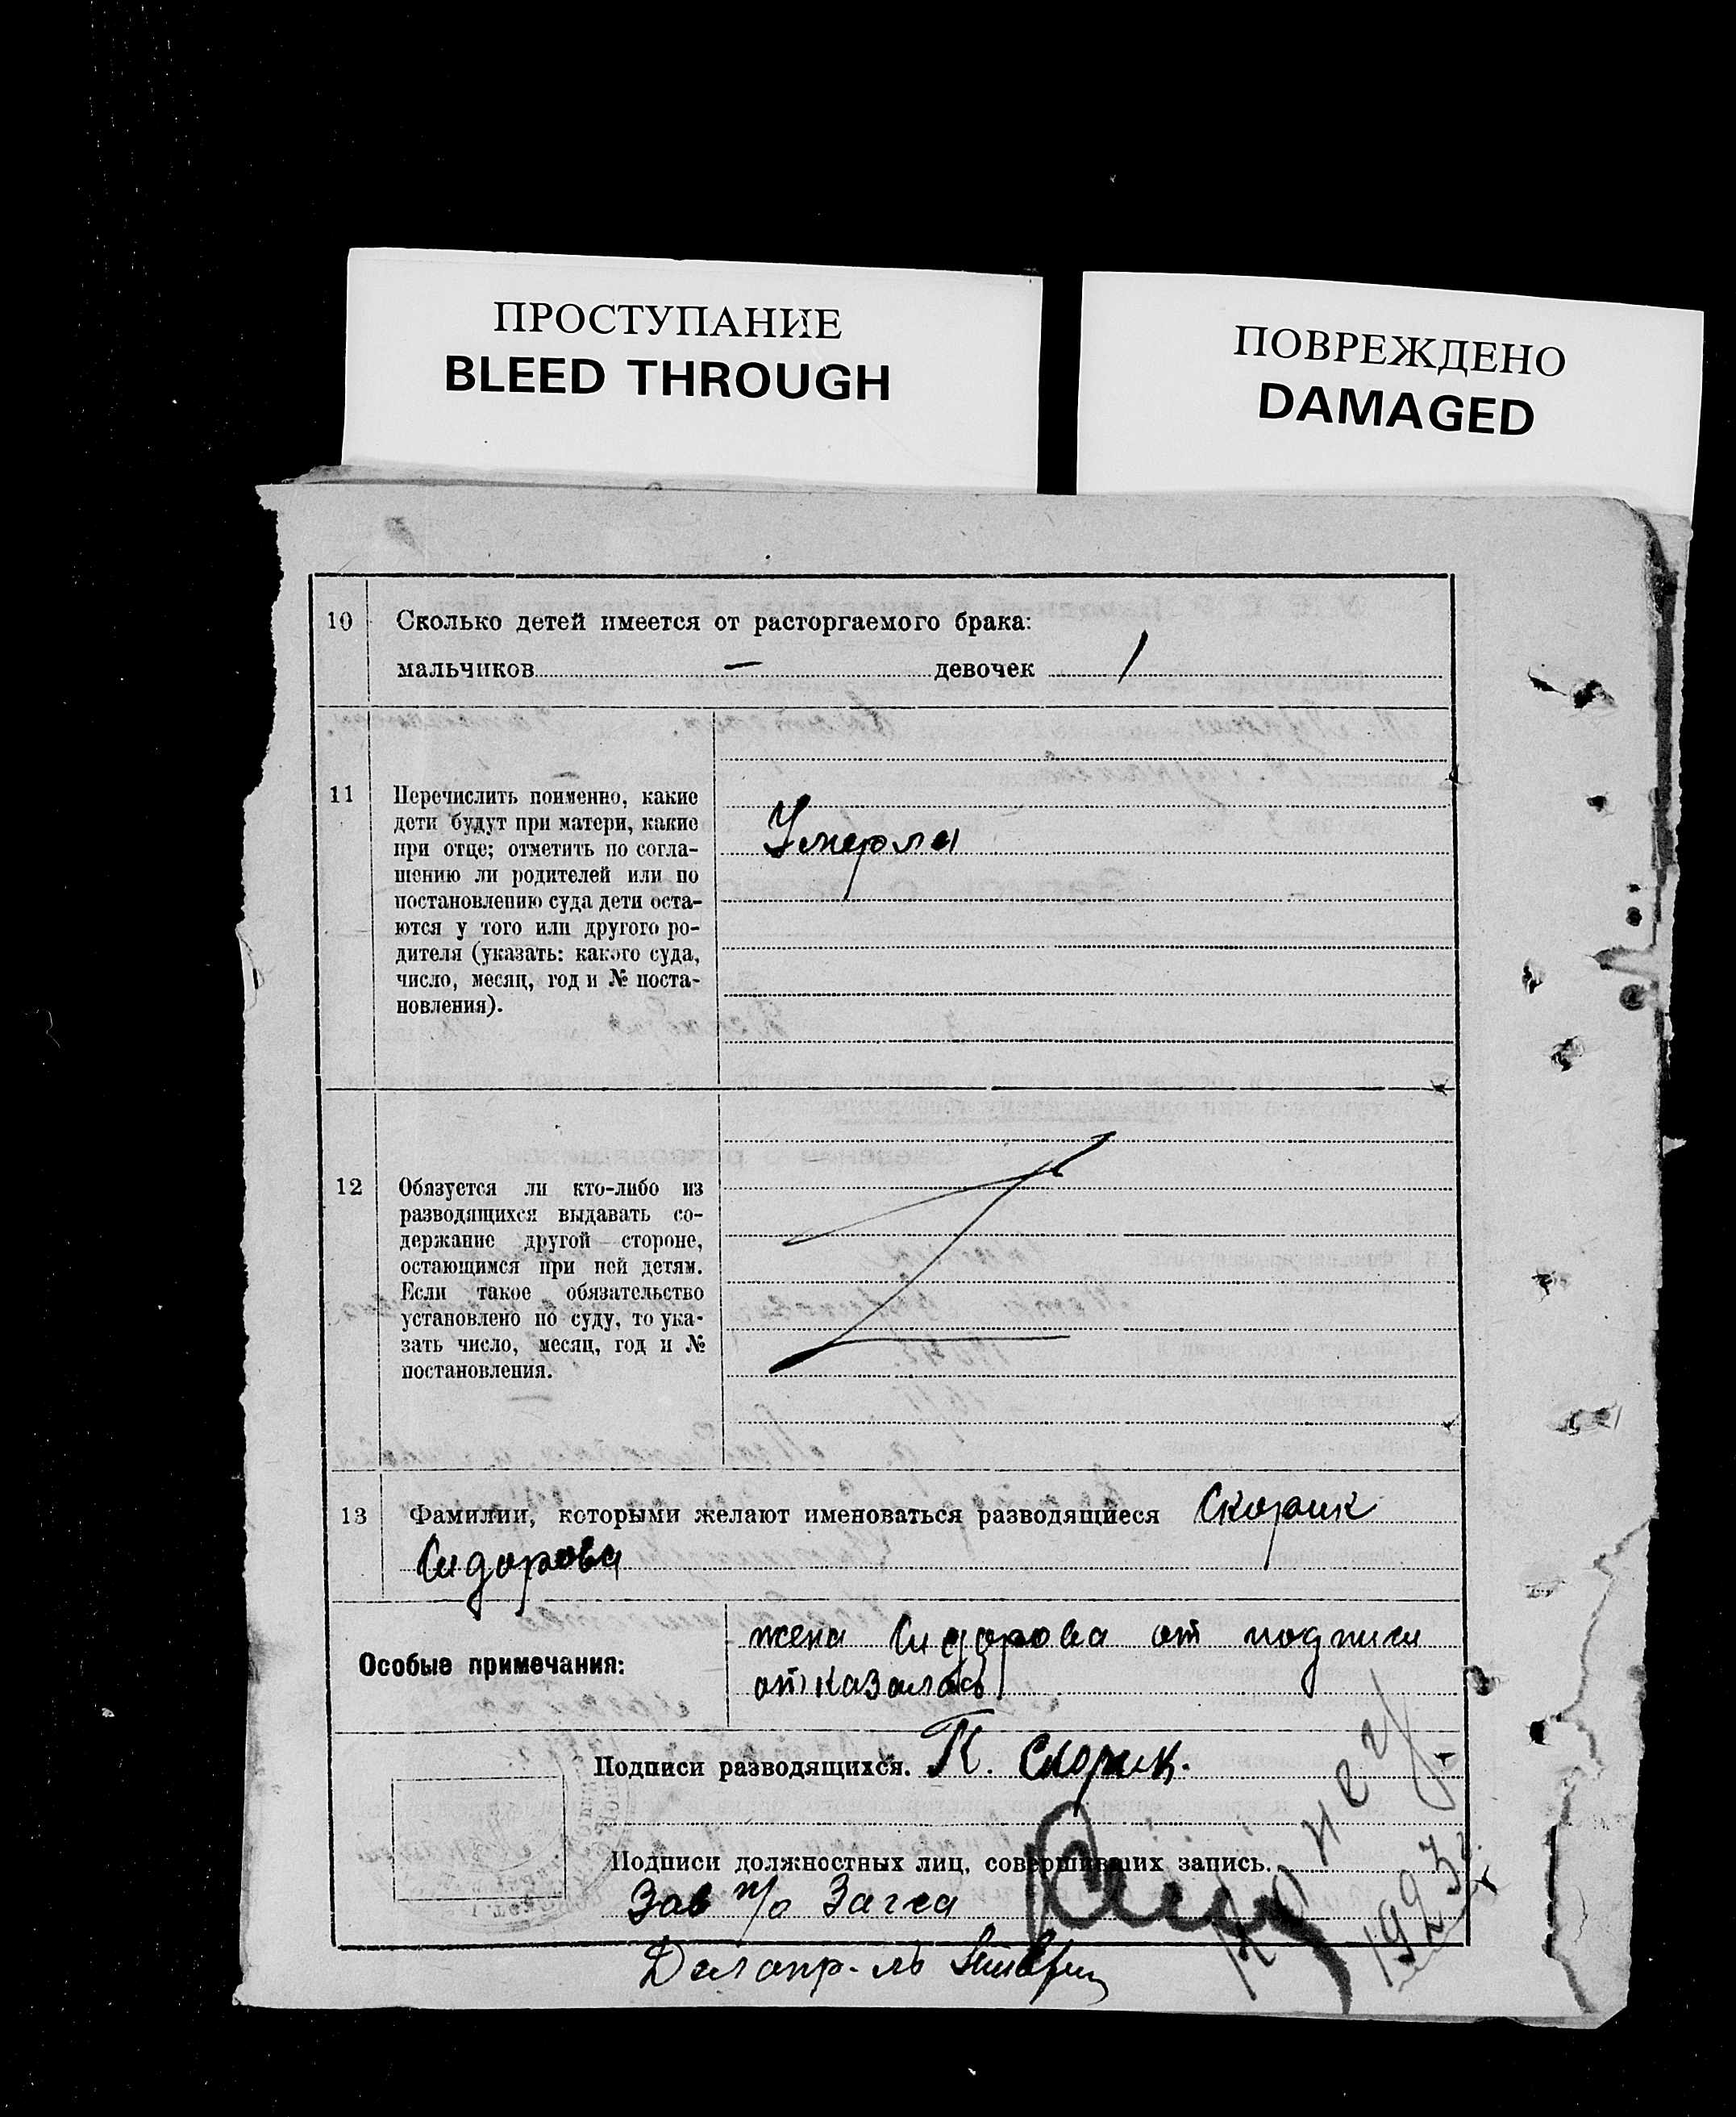 ПРОСТУПАНИЕ
BLEED THROUGH
ПОВРЕЖДЕНО
DAMAGED
10 Сколько детей имеется от расторгаемого брака:
мальчиков — девочек 1
11 Перечислить поименно, какие
дети будут при матери, какие
при отце; отметить по согла-
шению ли родителей или по
постановлению суда дети оста-
ются у того или другого ро-
дителя (указать: какого суда,
число, месяц, год и № поста-
новления).
Умерла
12 Обязуется ли кто-либо из
разводящихся выдавать со-
держание другой стороне,
остающимся при ней детям.
Если такое обязательство
установлено по суду, то ука-
зать число, месяц, год и №
постановления.
13 Фамилии, которыми желают именоваться разводящиеся Скорик
Сидорова
Особые примечания:
жена Сидорова от подписи
отказалась
Подписи разводящихся. П. Скорик.
Подписи должностных лиц, совершивших запись.
Зав п/о Загса
Делопр-ль